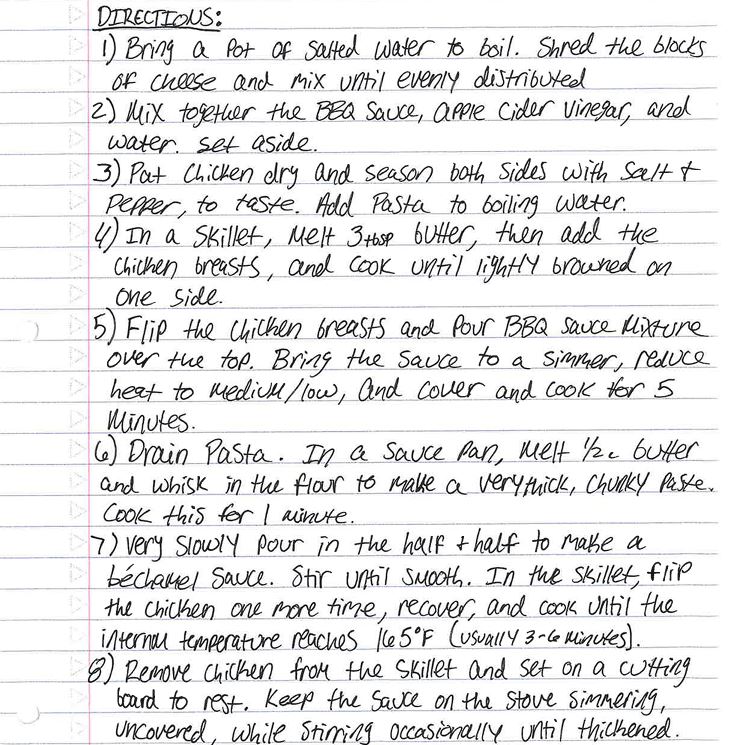 DIRECTIONS:
1) Bring a pot of salted water to boil. Shred the blocks
of cheese and mix until evenly distributed
2) Mix together the BBQ Sauce, apple cider vinegar, and
water. set aside.
3) Pat chicken dry and season both sides with salt +
pepper, to taste. Add pasta to boiling water.
4) In a skillet, melt 3 tbsp butter, then add the
chicken breasts, and cook until lightly browned on
one side.
5) Flip the chicken breasts and pour BBQ sauce mixture
over the top. Bring the sauce to a simmer, reduce
heat to medium/low, and cover and cook for 5
minutes.
6) Drain pasta. In a sauce pan, melt 1/2 c butter
and whisk in the flour to make a very thick, chunky paste.
Cook this for 1 minute.
7) Very slowly pour in the half + half to make a
béchamel sauce. Stir until smooth. In the skillet, flip
the chicken one more time, recover, and cook until the
internal temperature reaches 165°F (usually 3-6 minutes).
8) Remove chicken from the skillet and set on a cutting
board to rest. Keep the sauce on the stove simmering,
uncovered, while stirring occasionally until thickened.